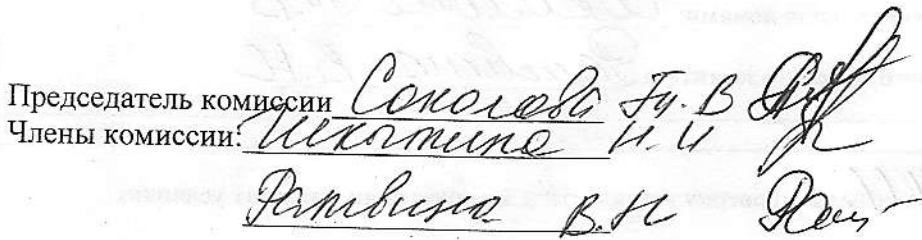 Председатель комиссии Соколова Гу. В
Члены комиссии: Шкытина Н. И
Ратвина В. Н